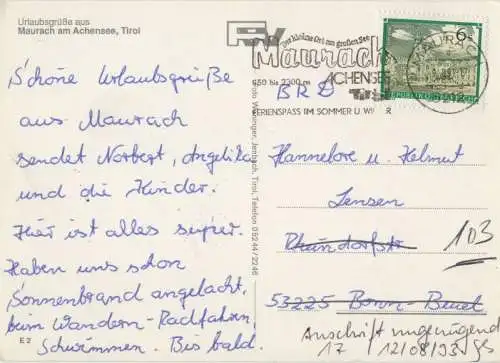 Urlaubsgrüße aus
Maurach am Achensee, Tirol
Schöne Urlaubsgrüße
aus Maurach
sendet Norbert, Angelika
und die Kinder.
Hier ist alles super.
Haben uns schon
Sonnenbrand angelacht,
beim Wandern - Radfahren,
Schwimmen. Bis bald.
E 2
Der kleine Ort am großen See
Maurach
950 bis 2300 m
ACHENSEE
FERIENSPASS IM SOMMER U.
MAURACH
6212
6
REPUBLIK ÖSTERREICH
BRD
Jenbach, Tirol, Telefon 05244/2246
Hannelore u. Helmut
Jensen
Rheindorfstr
103
53225 Bonn-Beuel
Anschrift ungenügend
17 12/08/93